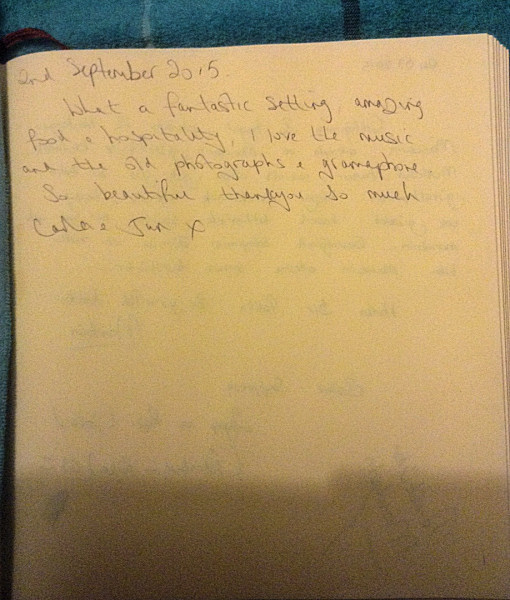 2nd September 2015.
What a fantastic setting, amazing
food & hospitality, I love the music
and the old photographs & gramophone
So beautiful thankyou so much
x